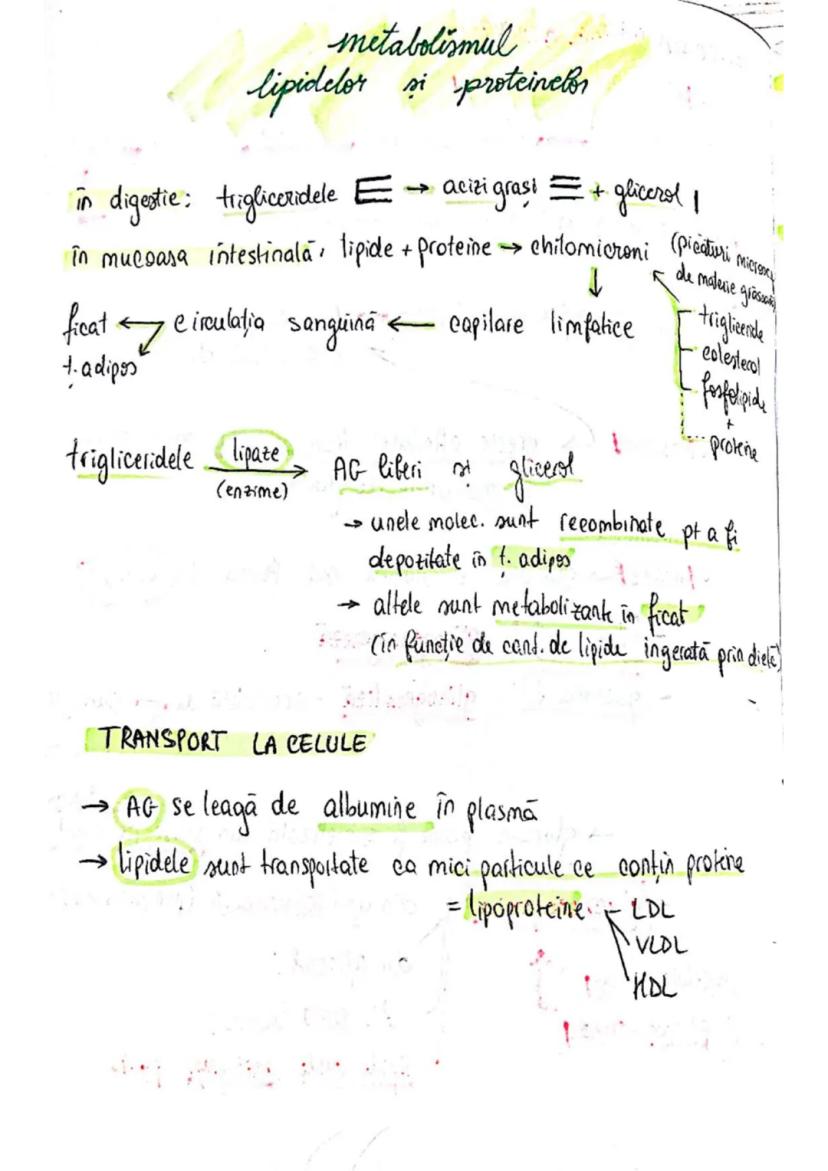 metabolismul
lipidelor și proteinelor
în digestie: trigliceridele → acizi grași + glicerol
în mucoasa intestinală, lipide + proteine → chilomicroni
(picături microsc
de materie grăsoasă)
↓
trigliceride
colesterol
fosfolipide
+
proteine
ficat ← circulația sanguină ← capilare limfatice
ț. adipos
trigliceridele lipaze → AG liberi și glicerol
(enzime)
→ unele molec. sunt recombinate pt a fi
depozitate în ț. adipos
→ altele sunt metabolizante în ficat
(în funcție de cant. de lipide ingerată prin dietă)
TRANSPORT LA CELULE
→ AG se leagă de albumine în plasmă
→ lipidele sunt transportate ca mici particule ce conțin proteine
= lipoproteine - LDL
VLDL
HDL